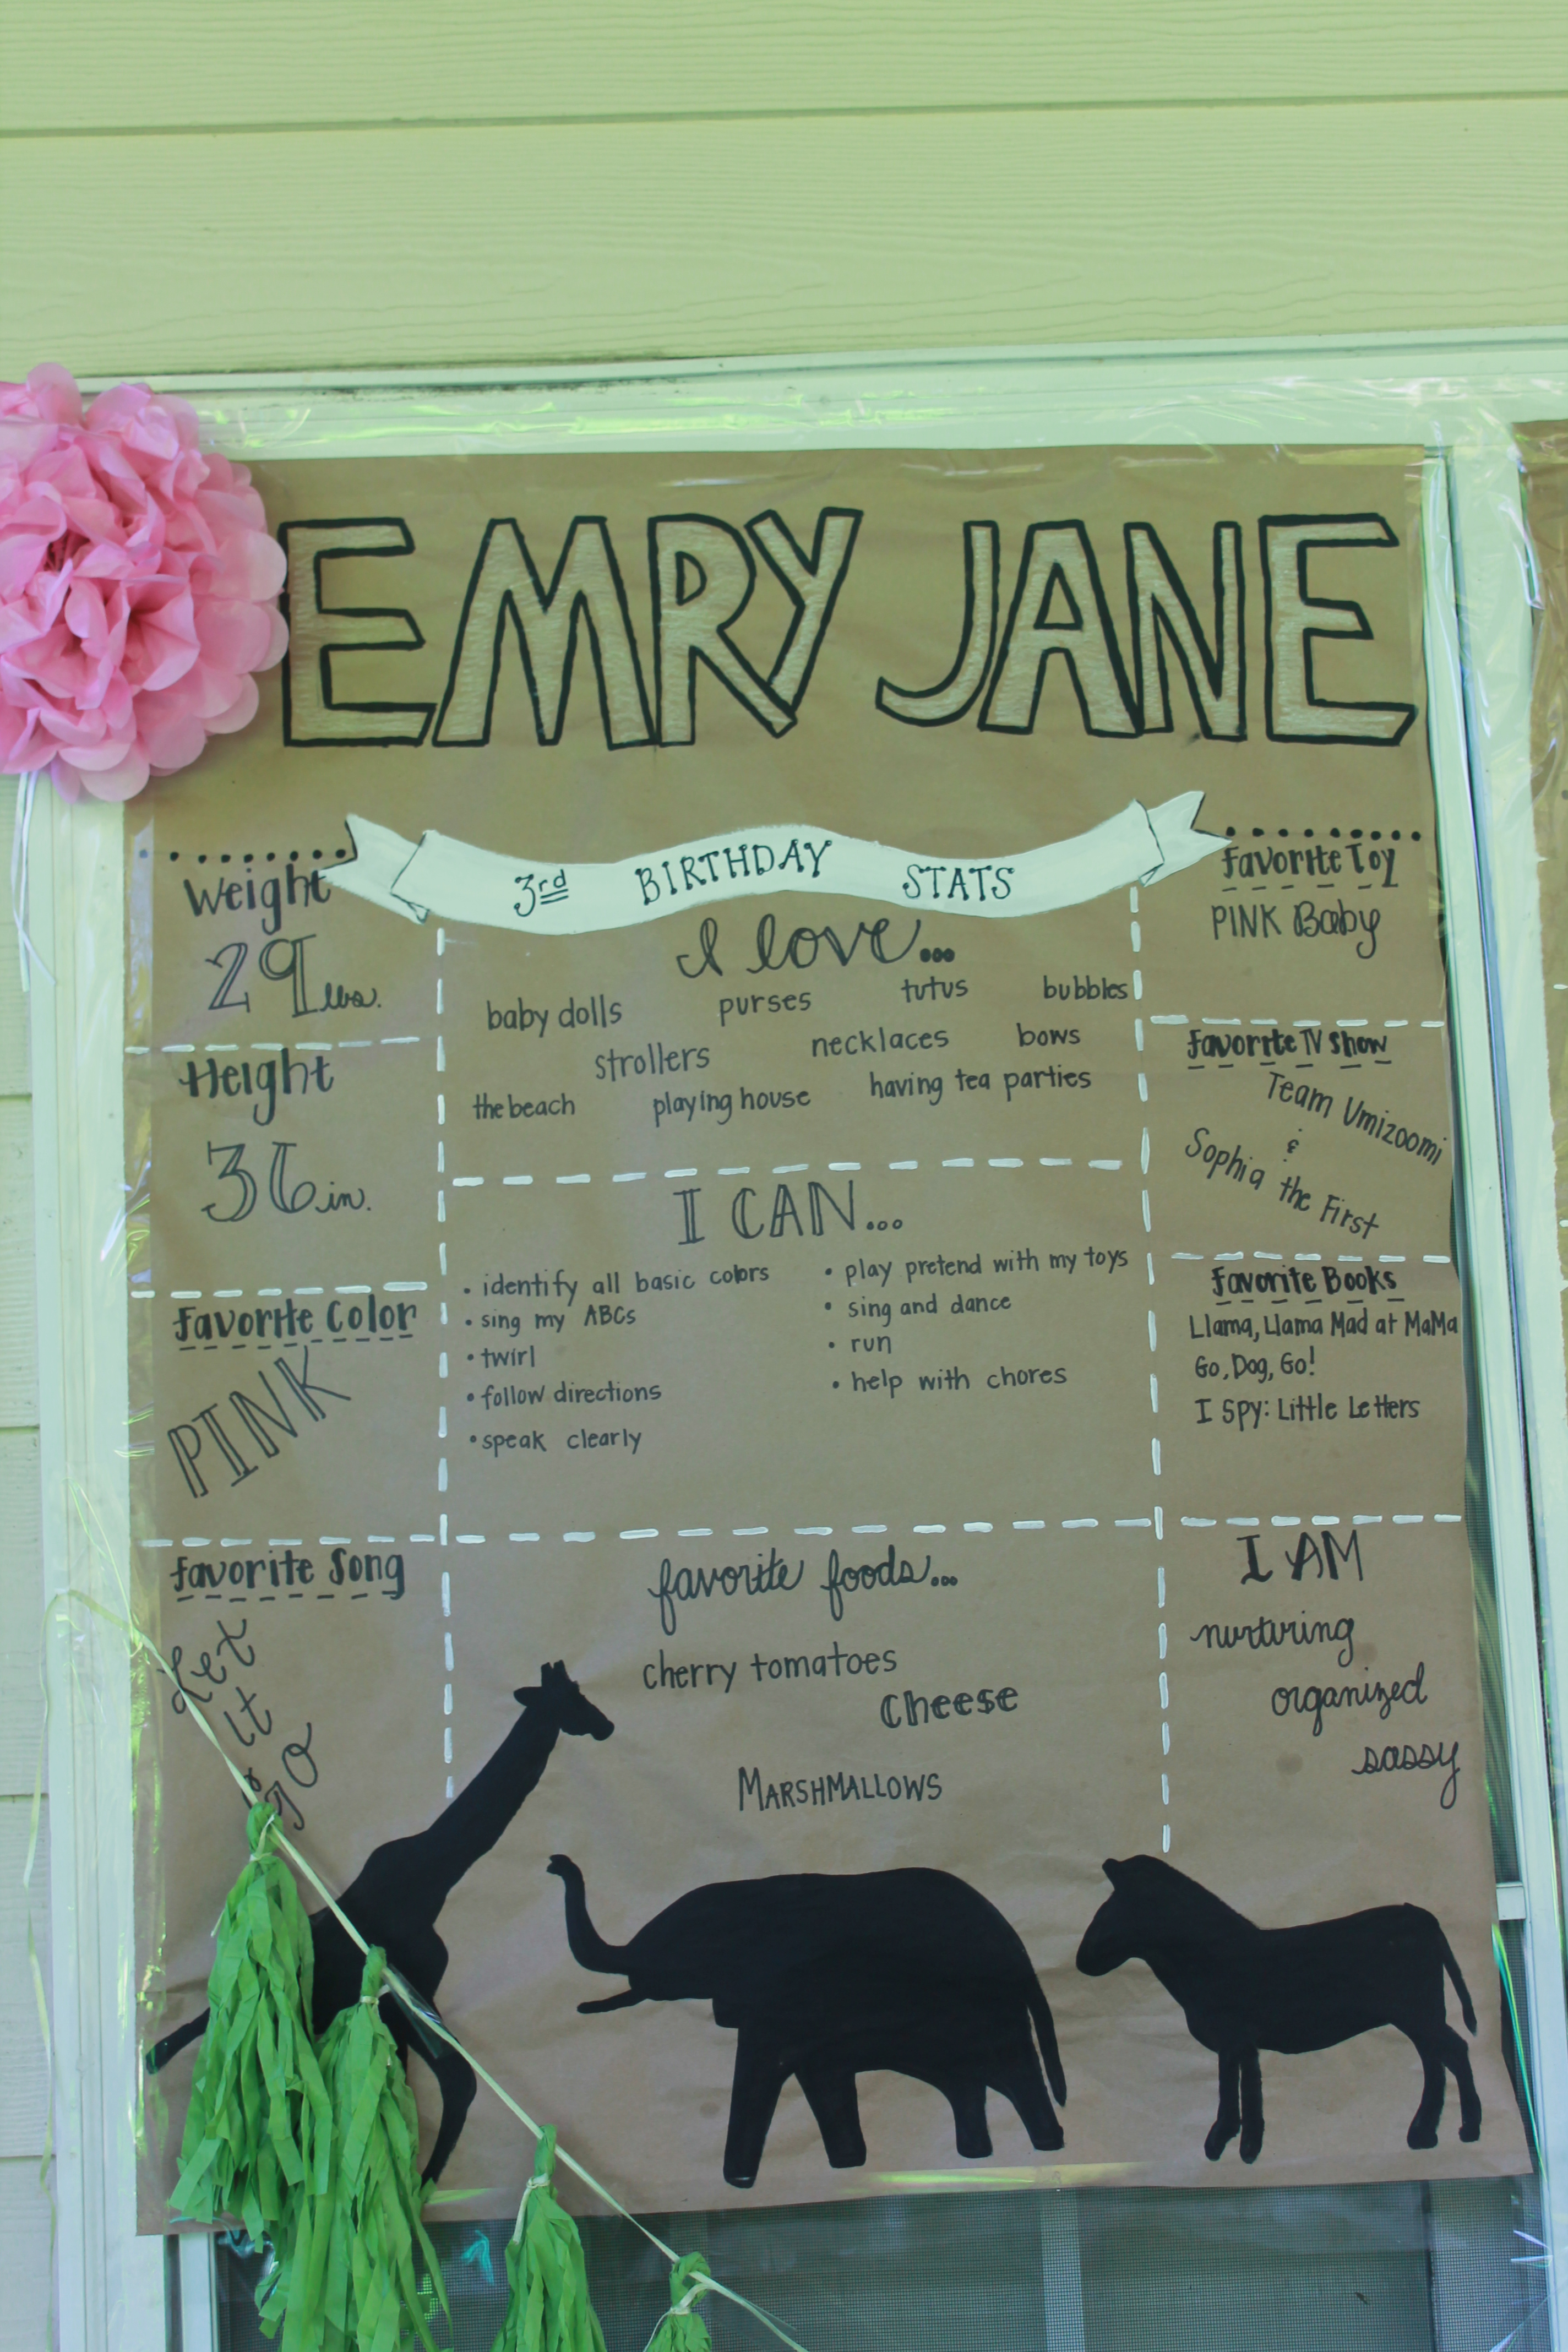 EMRY JANE
3rd BIRTHDAY STATS
Weight
29 lbs.
Height
36 in.
Favorite Color
PINK
Favorite Song
Let
it
go
I love...
baby dolls purses tutus bubbles
strollers necklaces bows
the beach playing house having tea parties
I CAN...
• identify all basic colors
• sing my ABCs
• twirl
• follow directions
• speak clearly
• play pretend with my toys
• sing and dance
• run
• help with chores
favorite foods...
cherry tomatoes
Cheese
MARSHMALLOWS
Favorite Toy
PINK Baby
Favorite TV Show
Team Umizoomi
&
Sophia the First
Favorite Books
Llama, Llama Mad at MaMa
Go, Dog, Go!
I SPY: Little Letters
I AM
nurturing
organized
sassy